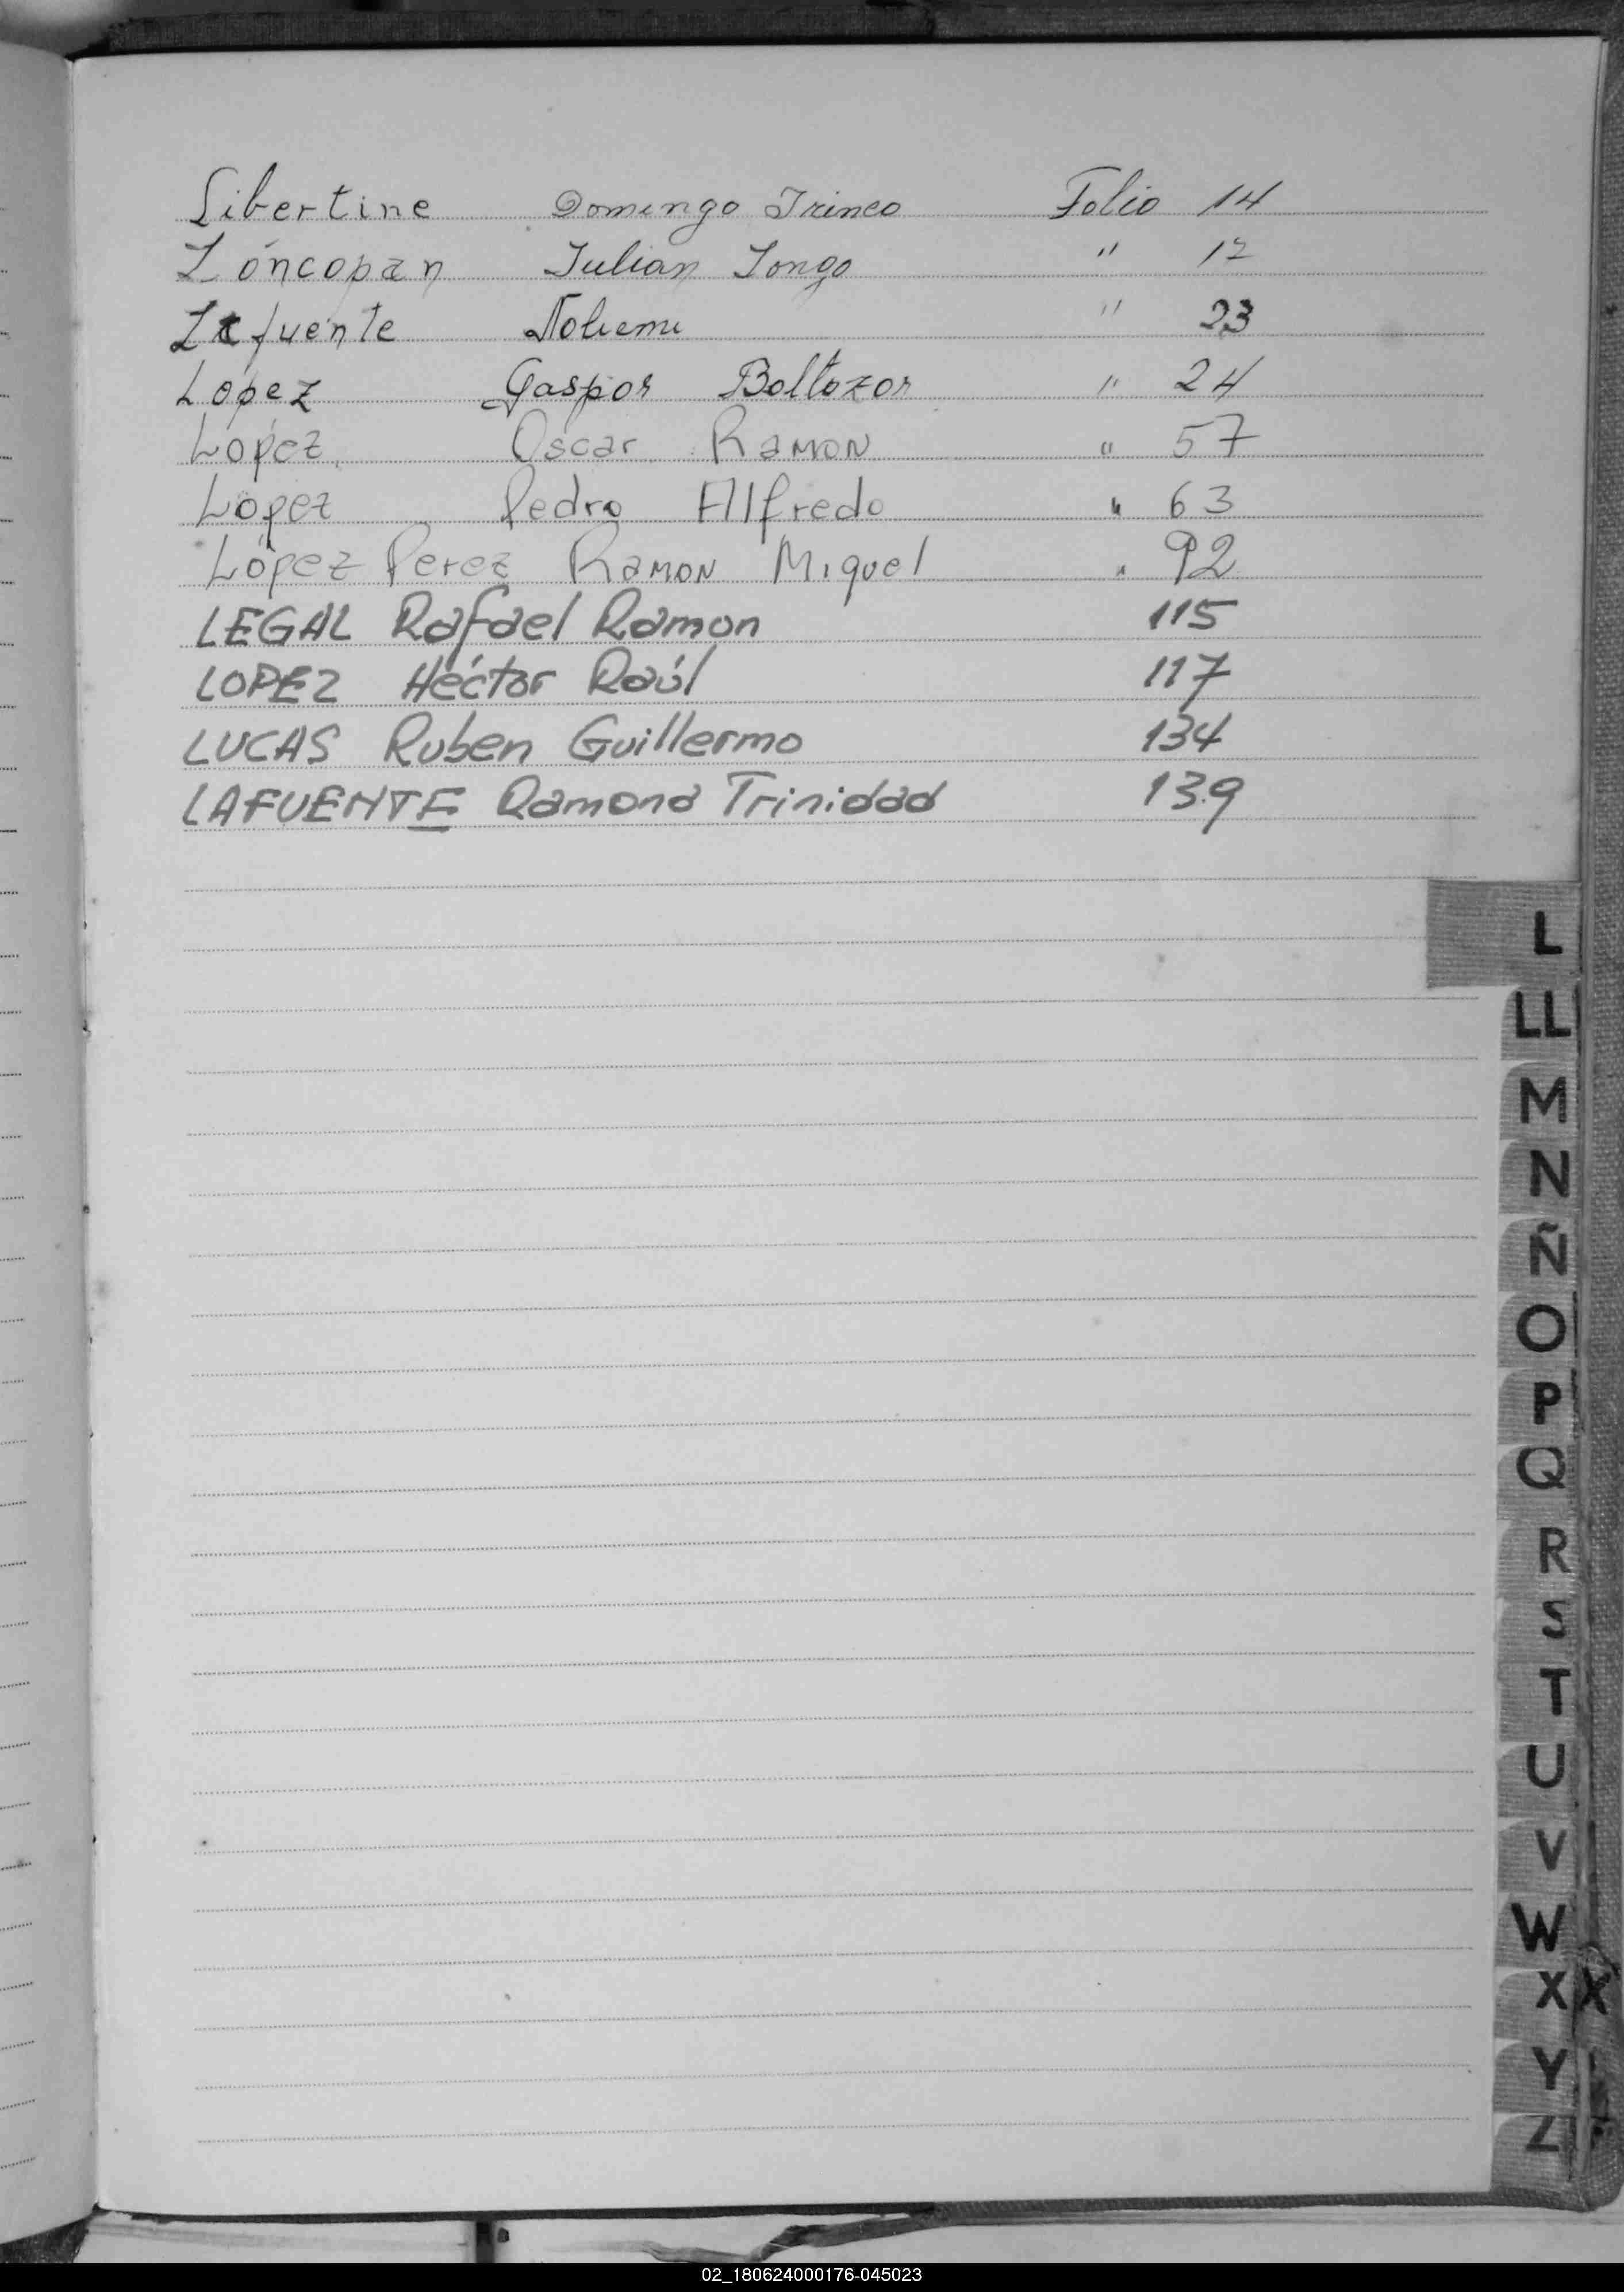 Libertine Domingo Irineo Folio 14
Loncopan Julian Longo " 12
Lafuente Nohemi " 23
Lopez Gaspar Baltazar " 24
Lopez Oscar Ramon " 57
Lopez Pedro Alfredo " 63
López Perez Ramon Miguel " 92
LEGAL Rafael Ramon 115
LOPEZ Héctor Raúl 117
LUCAS Ruben Guillermo 134
LAFUENTE Ramona Trinidad 139
L
LL
M
N
Ñ
O
P
Q
R
S
T
U
V
W
X X
Y
Z
02_180624000176-045023